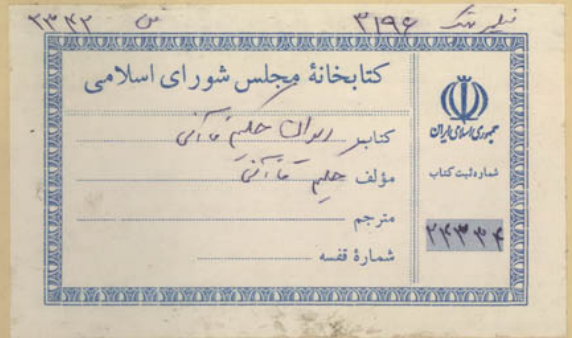 فیلم شد ۳۱۹۶ س ۳۳۴۲
کتابخانهٔ مجلس شورای اسلامی
کتاب دیوان حکیم قاآنی
مؤلف حکیم قاآنی
مترجم
شمارهٔ قفسه
جمهوری اسلامی ایران
شماره ثبت کتاب
۲۴۳۳۴